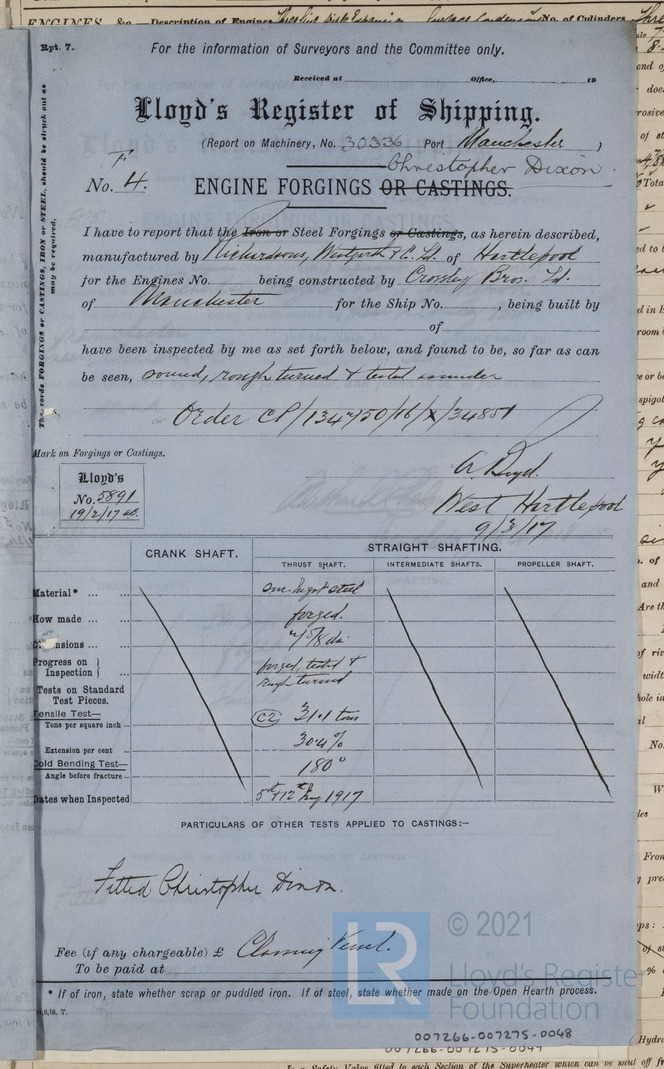 ENGINES, &c.—Description of Engines Surface Condensing No. of Cylinders
Rpt. 7.
For the information of Surveyors and the Committee only.
Received at Office, 19
Lloyd's Register of Shipping.
(Report on Machinery, No. 30336 Port Manchester)
Christopher Dixon
No. 4. ENGINE FORGINGS OR CASTINGS.
The words FORGINGS or CASTINGS, IRON or STEEL, should be struck out as may be required.
I have to report that the Iron or Steel Forgings or Castings, as herein described,
manufactured by Richardsons, Westgarth & Co. Ld. of Hartlepool
for the Engines No. being constructed by Crossley Bros. Ld.
of Manchester for the Ship No. , being built by
of
have been inspected by me as set forth below, and found to be, so far as can
be seen, sound, rough turned & tested
Order CP/
Mark on Forgings or Castings.
Lloyd's
No. 5891
19/2/17
A. Boyd.
West Hartlepool
9/3/17
CRANK SHAFT. STRAIGHT SHAFTING.
THRUST SHAFT. INTERMEDIATE SHAFTS. PROPELLER SHAFT.
Material* ... ... ingot steel
How made ... ... forged.
Dimensions ... dia
Progress on Inspection } ... forged, tested & rough turned
Tests on Standard Test Pieces.
Tensile Test—
Tons per square inch ... 31.1 tons
Extension per cent 30.4%
Cold Bending Test—
Angle before fracture... 180°
Dates when Inspected 1917
PARTICULARS OF OTHER TESTS APPLIED TO CASTINGS:—
Fitted Christopher Dixon.
Fee (if any chargeable) £ Vessel.
To be paid at
* If of iron, state whether scrap or puddled iron. If of steel, state whether made on the Open Hearth process.
LR
© 2021
Lloyd's Register
Foundation
007266-007275-0048
007266-007275-0047
in a Safety Valve fitted to each Section of the Superheater which can be shut off